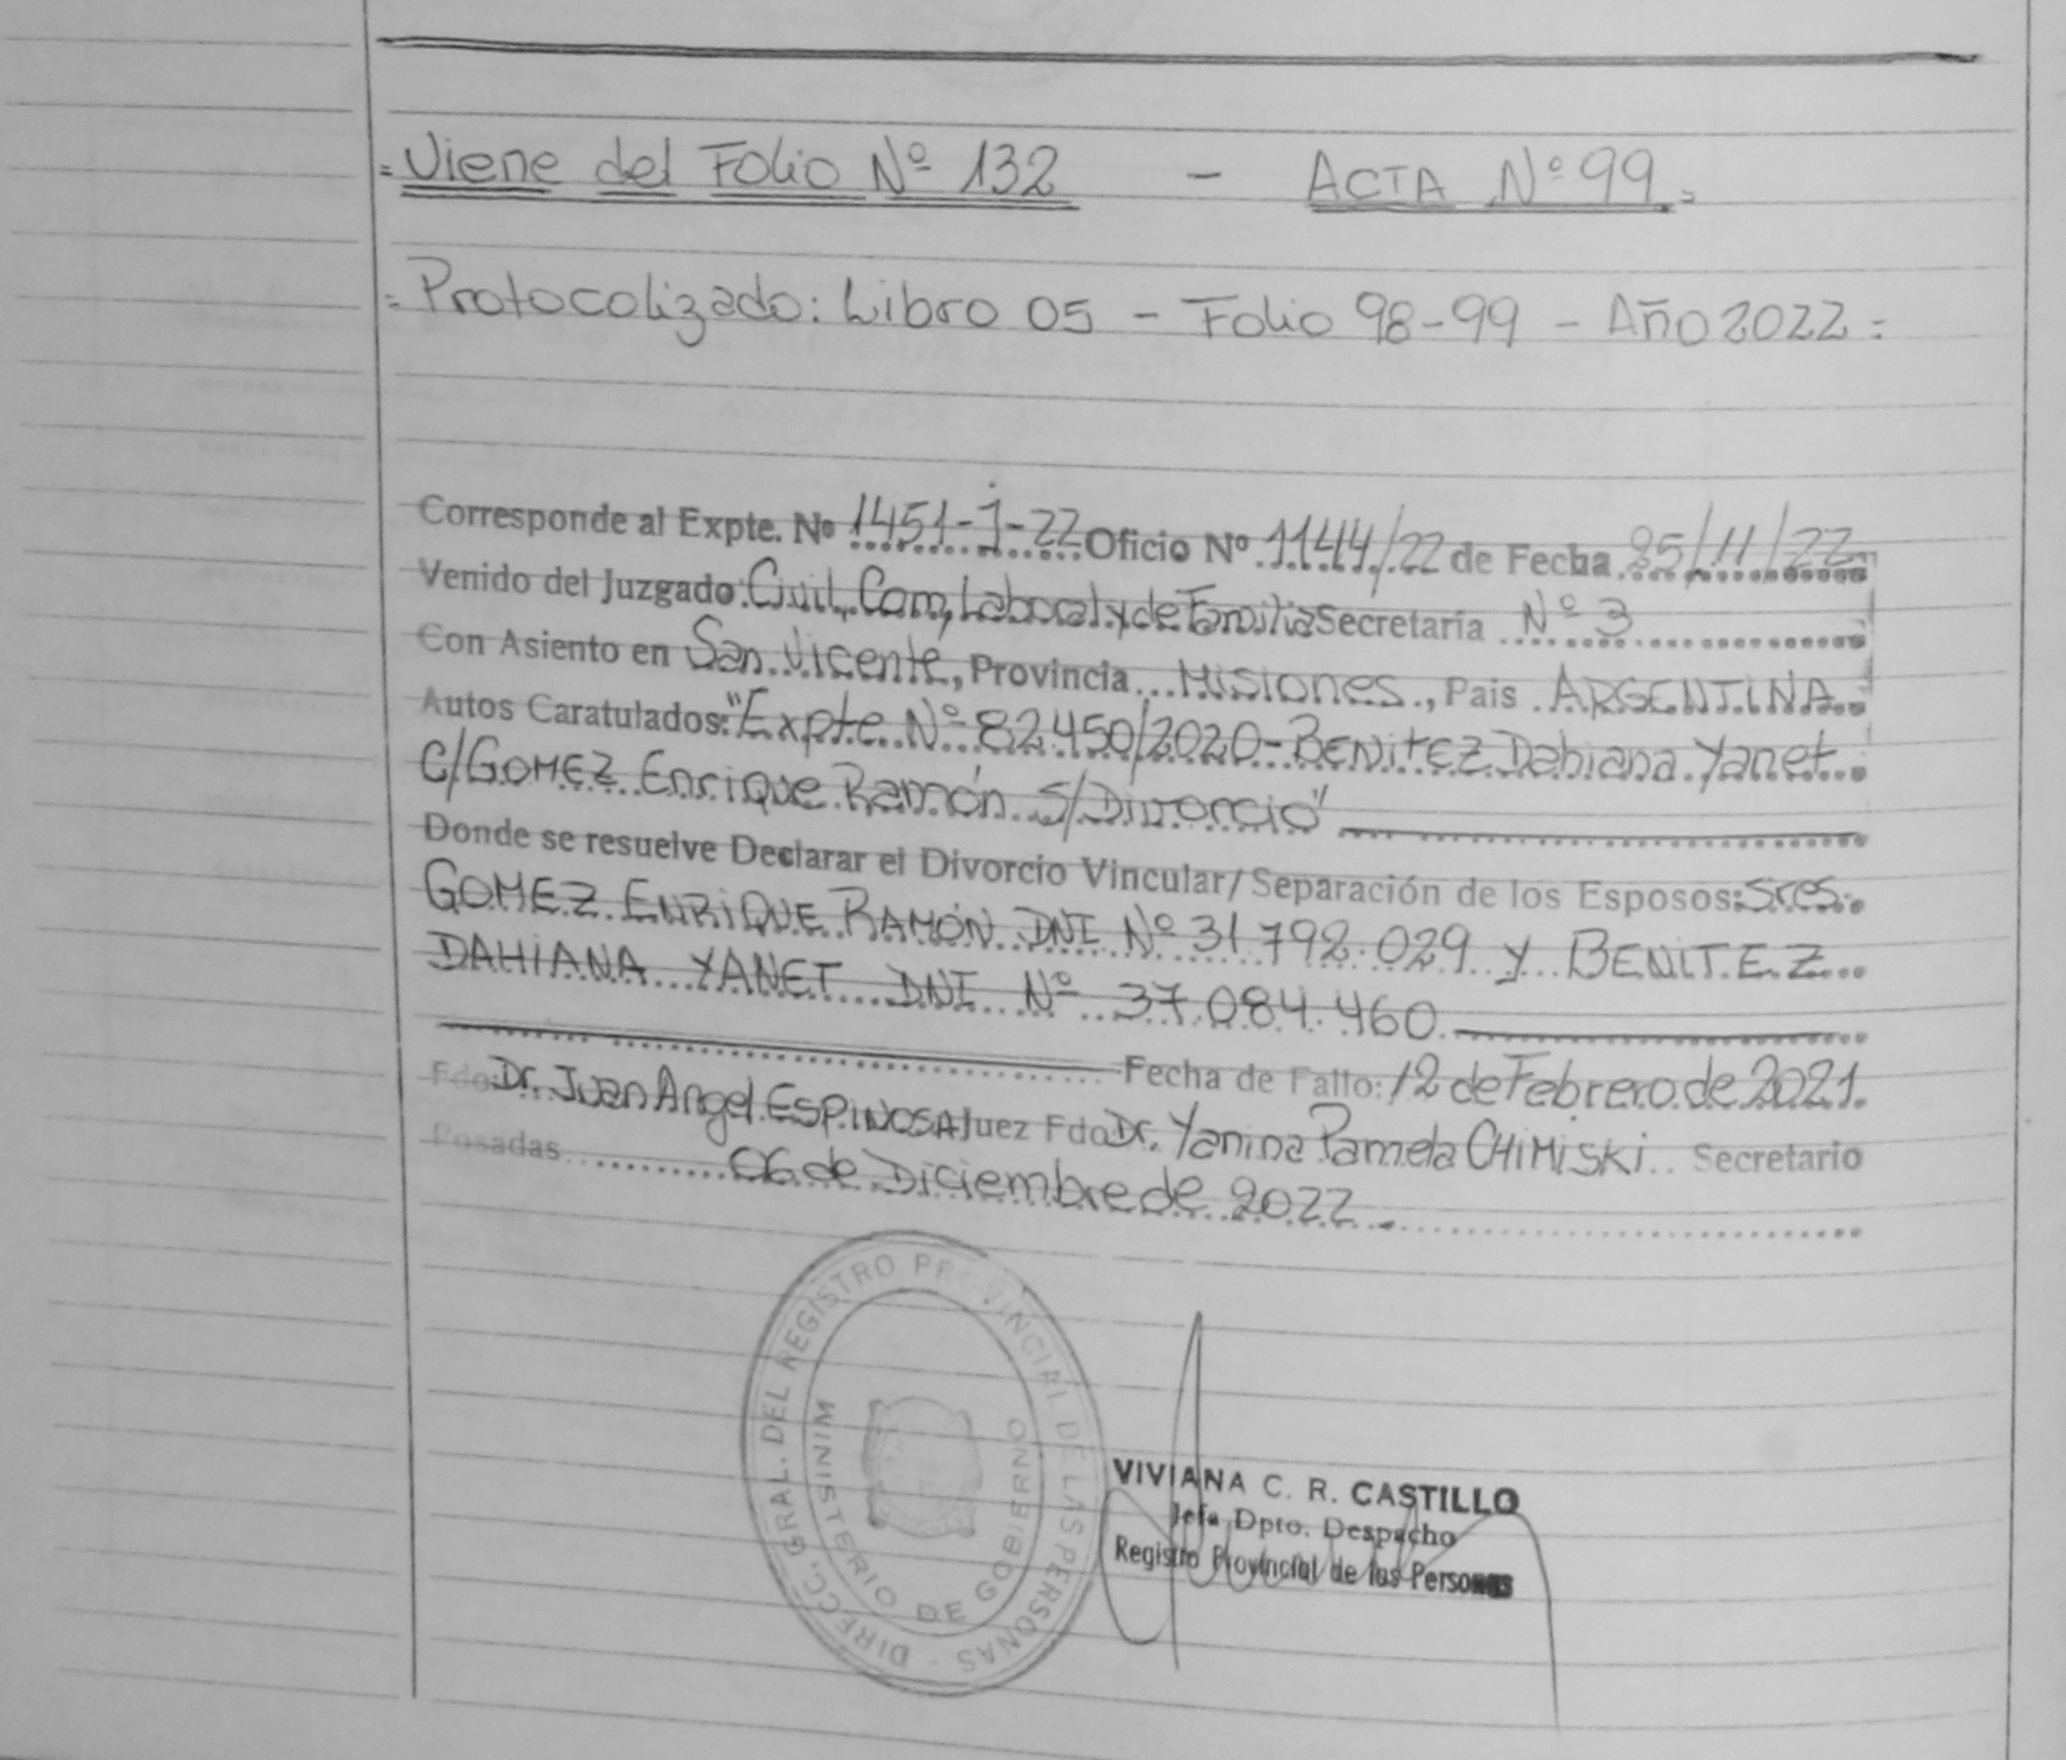 = Viene del Folio Nº 132 - ACTA Nº 99 =
= Protocolizado: Libro 05 - Folio 98-99 - Año 2022 =
Corresponde al Expte. Nº 1451-J-22 Oficio Nº 1144/22 de Fecha 25/11/22
Venido del Juzgado: Civil, Com, Laboral y de Familia Secretaría Nº 3
Con Asiento en San Vicente, Provincia Misiones, Pais ARGENTINA
Autos Caratulados: "Expte. Nº 82450/2020 - BENITEZ Dahiana Yanet
C/GOMEZ Enrique Ramón S/Divorcio"
Donde se resuelve Declarar el Divorcio Vincular/Separación de los Esposos: Sres.
GOMEZ ENRIQUE RAMÓN DNI Nº 31.792.029 y BENITEZ
DAHIANA YANET DNI Nº 37.084.460
Fecha de Fallo: 12 de Febrero de 2021.
Fdo: Dr. Juan Angel ESPINOSA Juez Fdo Dr. Yanina Pamela CHIMISKI Secretario
Posadas 06 de Diciembre de 2022.
DIRECC. GRAL. DEL REGISTRO PROVINCIAL DE LAS PERSONAS -
MINISTERIO DE GOBIERNO
VIVIANA C. R. CASTILLO
Jefa Dpto. Despacho
Registro Provincial de las Personas